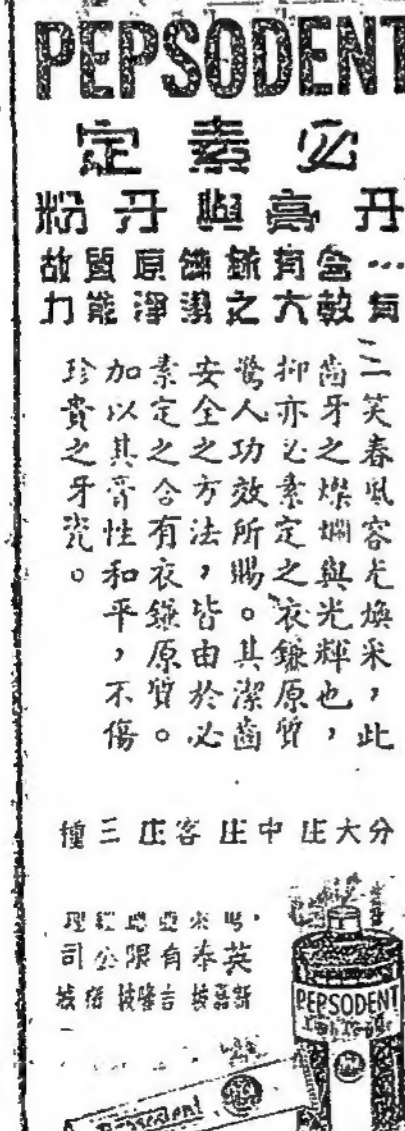 PEPSODENT
必素定
牙膏與牙粉
…含有銥鎌原質故
有效大之潔淨能力
一笑春風容光煥采,此
齒牙之燦爛與光輝也,
抑亦必素定之衣鎌原質
驚人功效所賜。其潔齒
安全之方法,皆由於必
素定之含有衣鎌原質。
加以其膏性和平,不傷
珍貴之牙瓷。
分大庄中庄客庄三種
英泰有限公司
新嘉坡 吉隆坡 檳城
PEPSODENT
Pepsodent